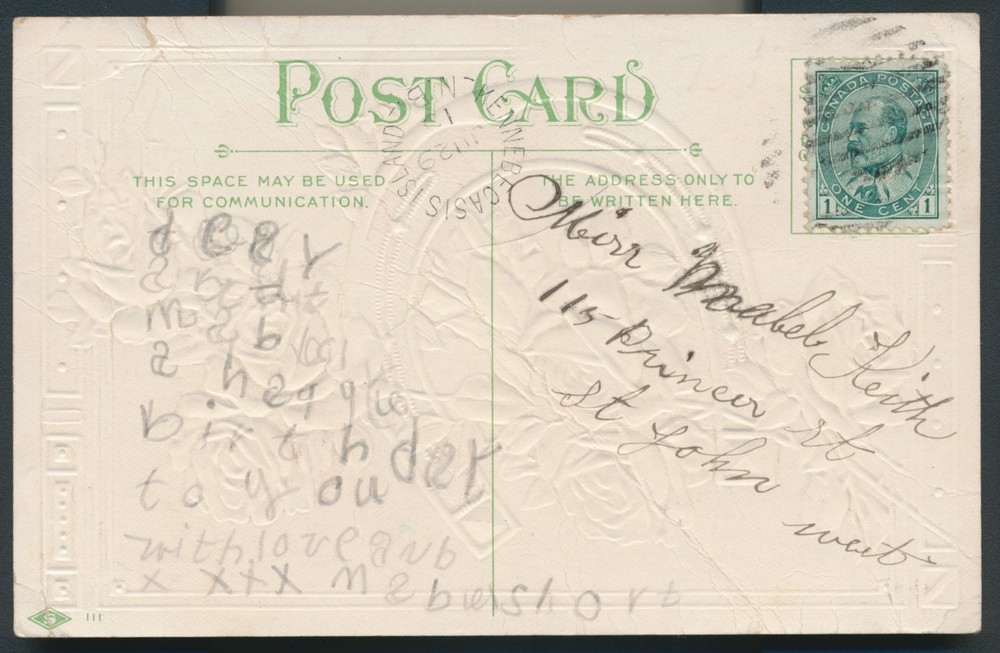 POST CARD
KENNEBECASIS ISLAND N.B.
1
JU 29
CANADA POSTAGE
ONE CENT
1 1
THIS SPACE MAY BE USED
FOR COMMUNICATION.
THE ADDRESS ONLY TO
BE WRITTEN HERE.
dear
a happy
birthday
to you
with love and
x xxx
Miss Maabel Keith
115 Princess St
St John
west
S 111